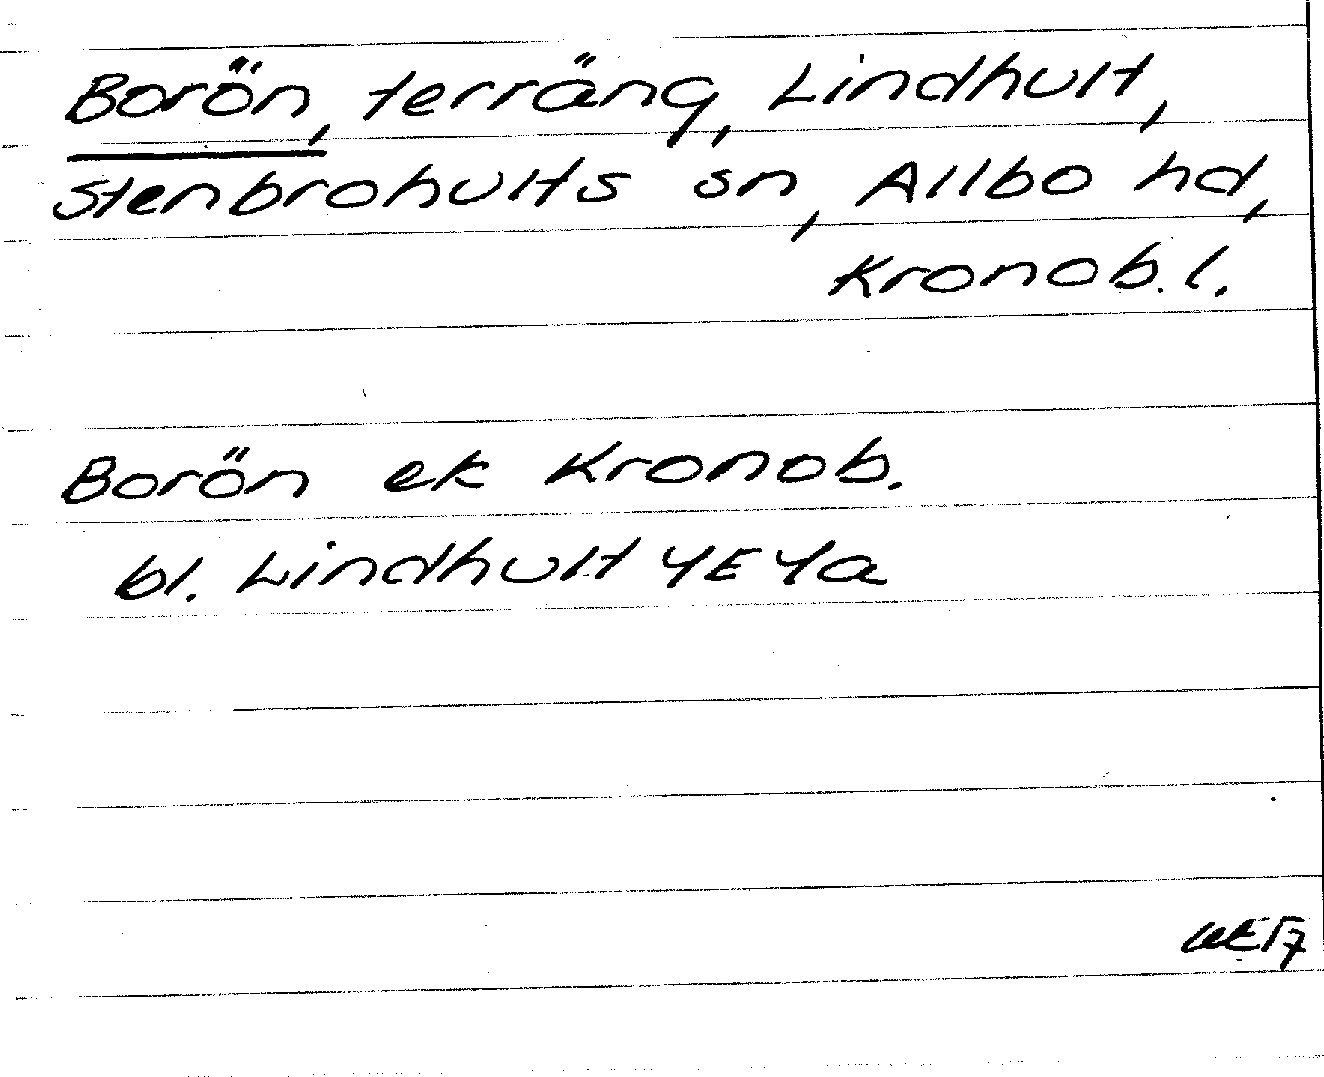 Borön, terräng, Lindhult,
Stenbrohults sn, Allbo hd,
Kronob. l.
Borön ek Kronob.
bl. Lindhult 4E4a